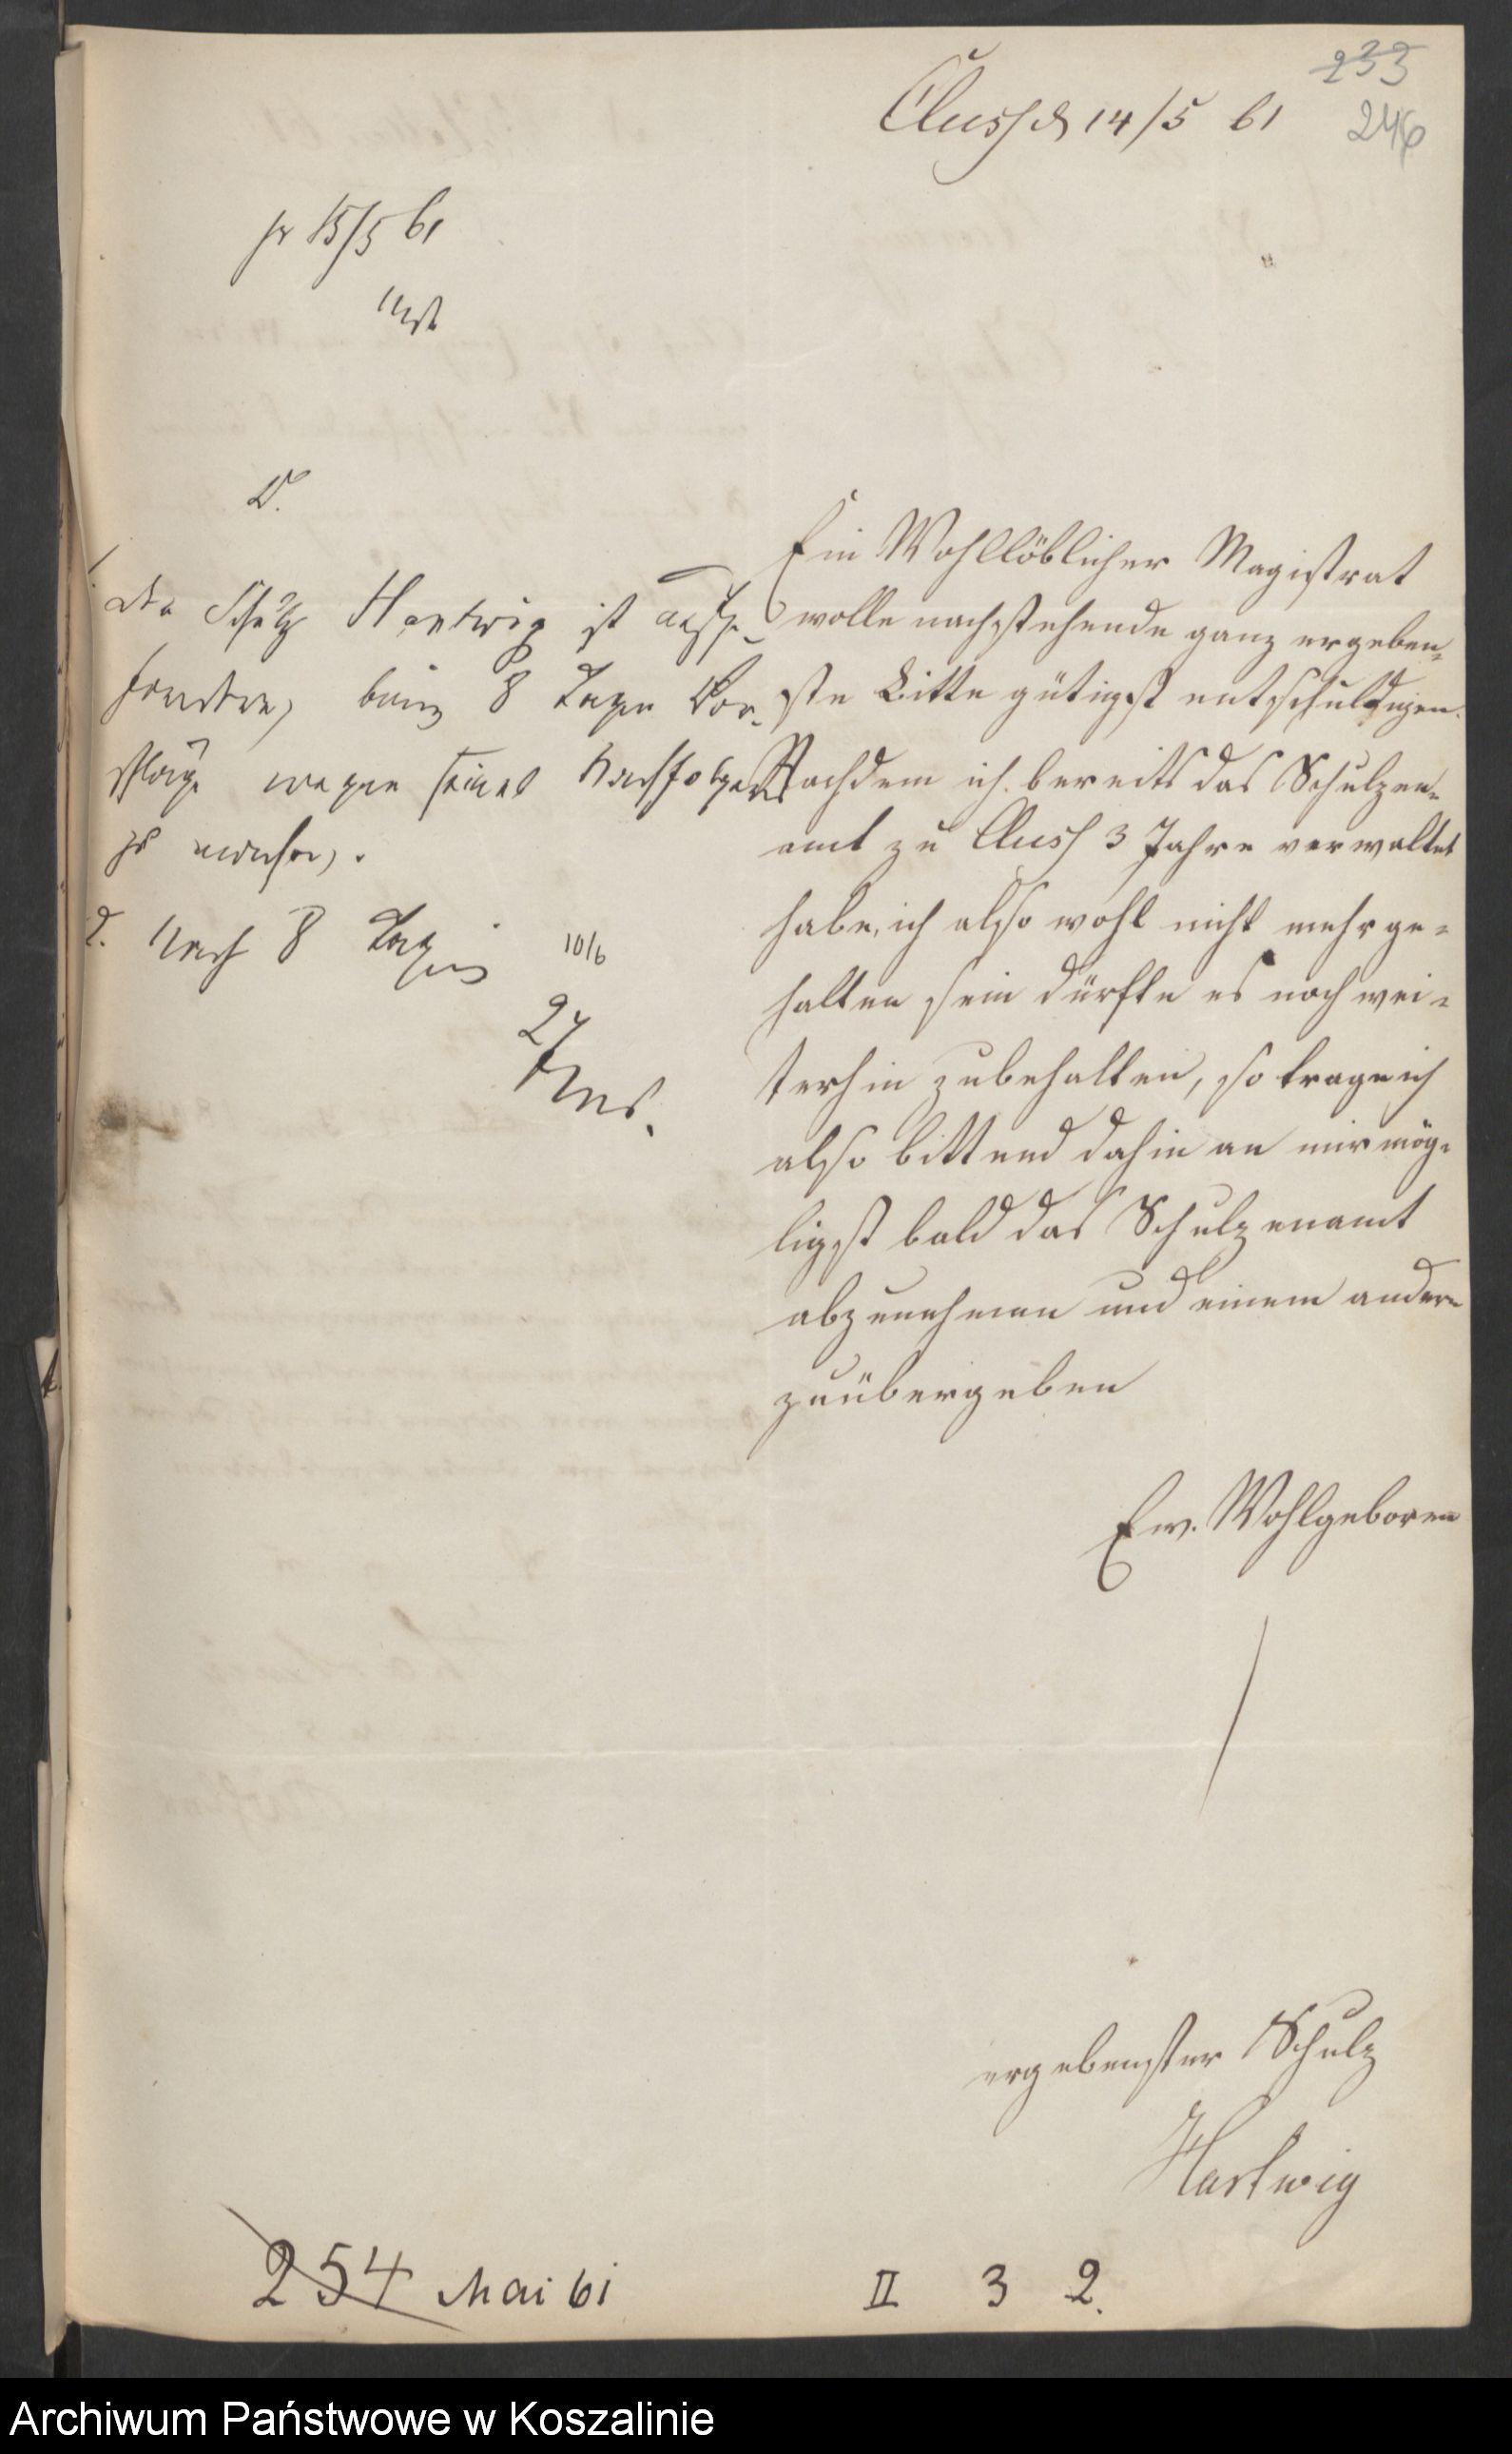 233
246
Cluss d 14/5 61
pr 15/5 61
V.
1. der Schulz Hartwig ist aufzu-
fordern, binnen 8 Tagen Vor-
schläge wegen seines Nachfolgers
zu machen.
2. Nach 8 Tagen
10/6
Ein Wohllöblicher Magistrat
wolle nachstehende ganz ergeben-
ste Bitte gütigst entschuldigen.
Nachdem ich bereits das Schulzen-
amt zu Cluss 3 Jahre verwaltet
habe, ich also wohl nicht mehr ge-
halten sein dürfte es noch wei-
terhin zubehalten, so trage ich
also bittend dahin an mir mög-
ligst bald das Schulzenamt
abzunehmen und einem andern
zuübergeben
Ew. Wohlgeboren
ergebenster Schulz
Hartwig
254 Mai 61
II 3 2.
Archiwum Państwowe w Koszalinie